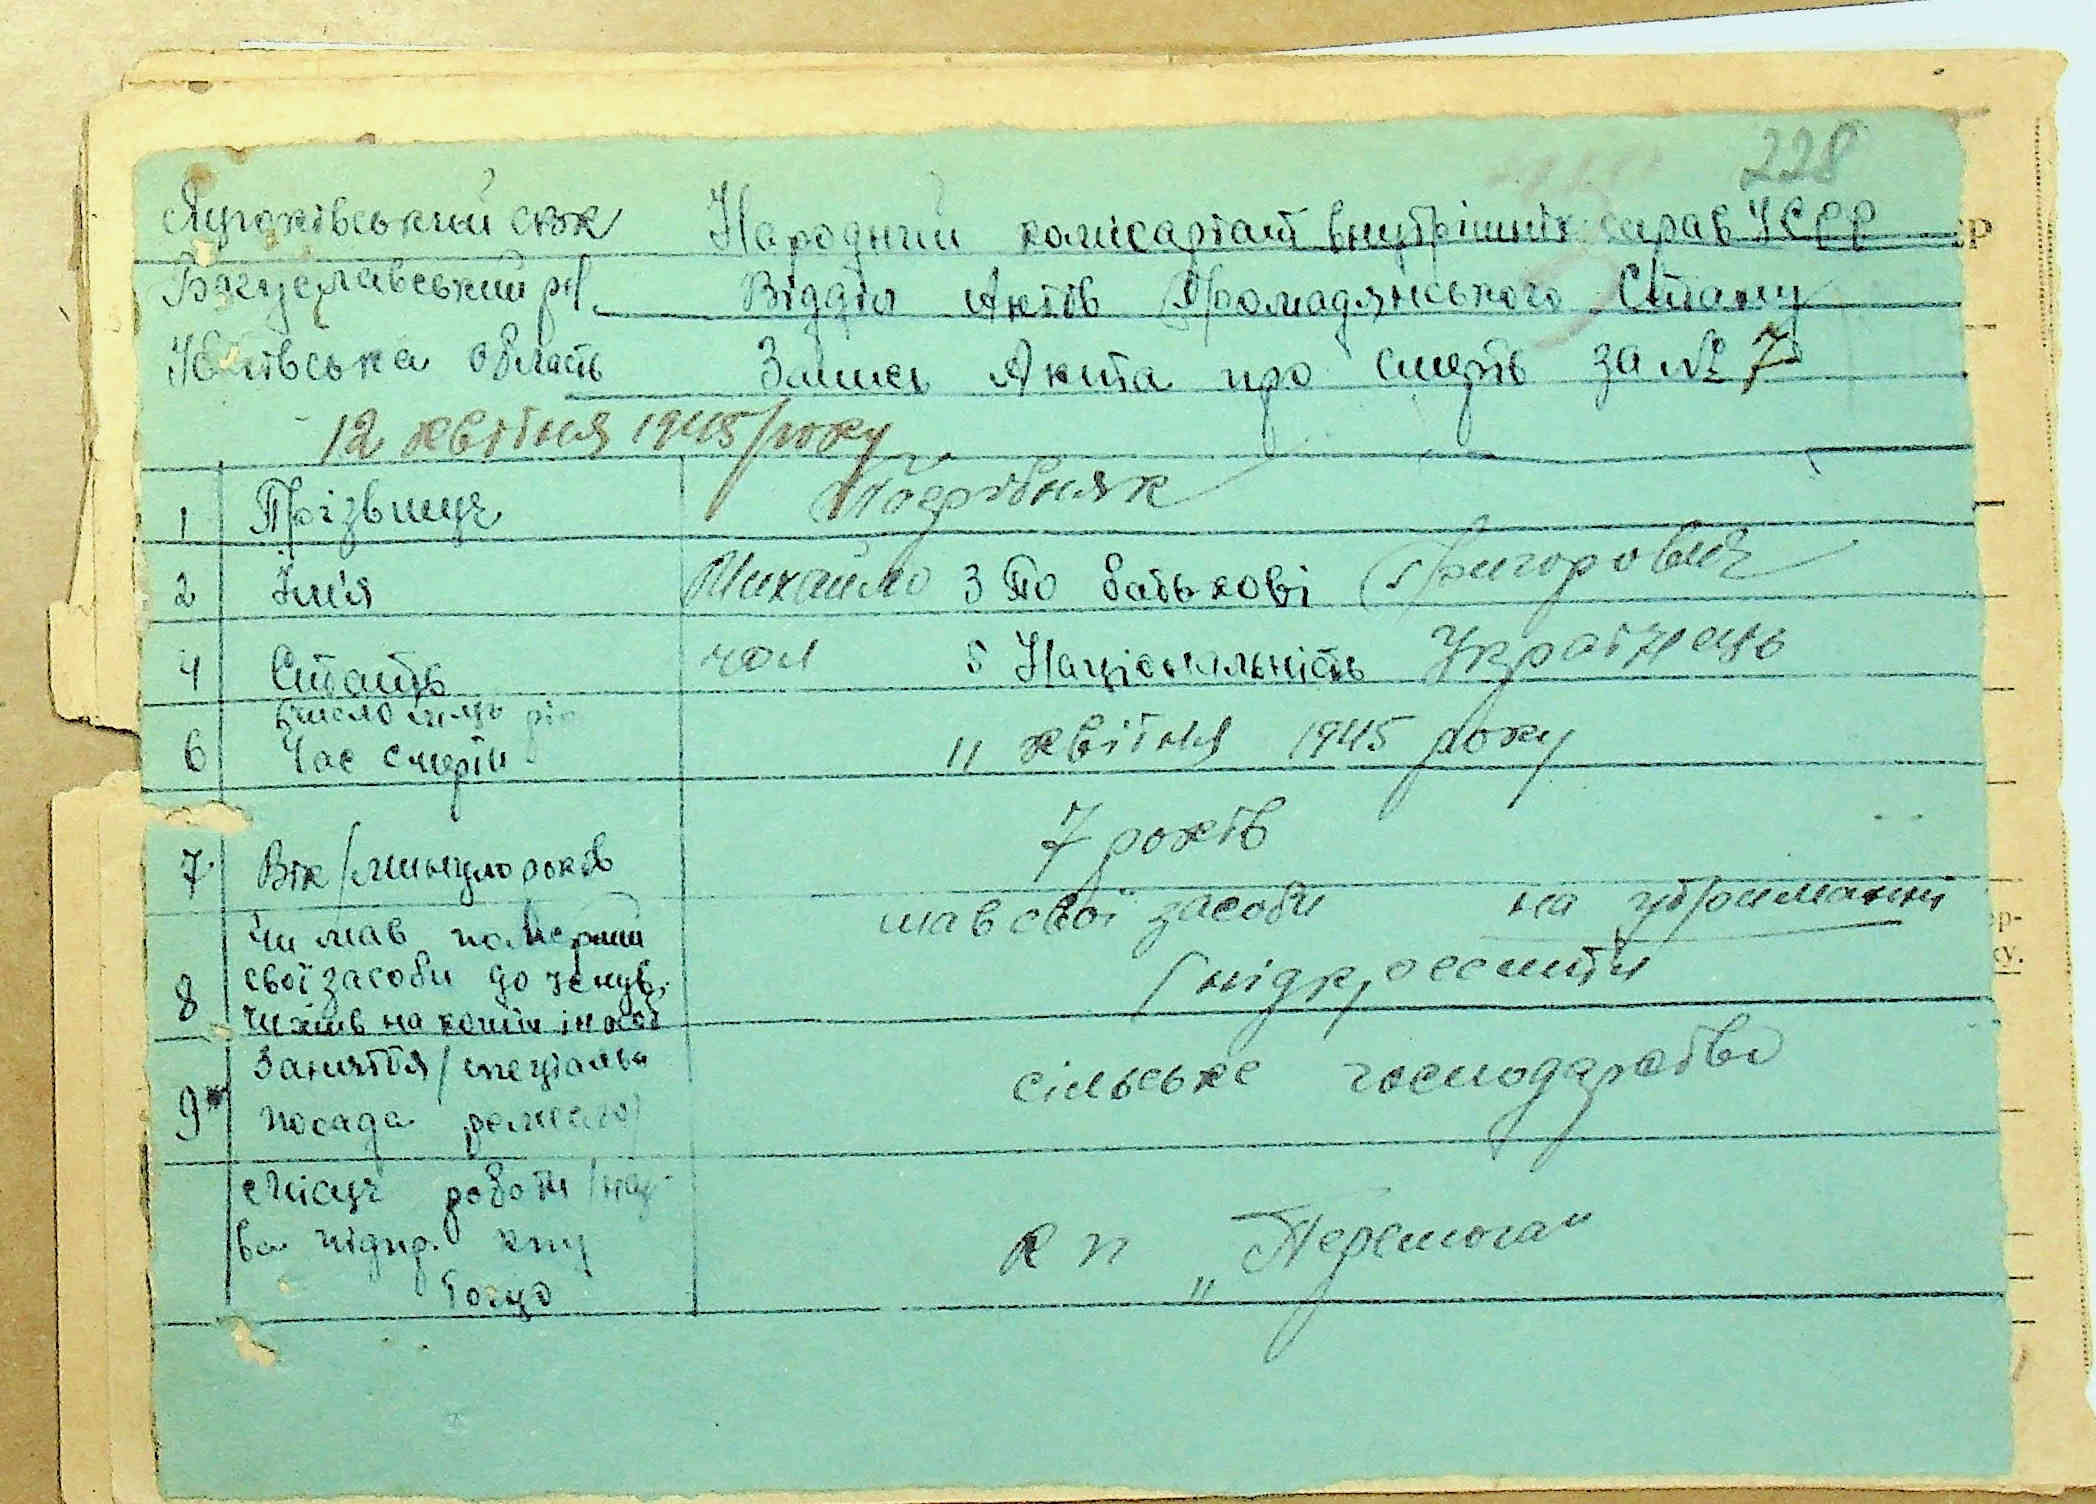 228
Народний комісаріат внутрішніх справ УСРР
Богуславський р-н. Відділ Актів Громадянського Стану
Київська область Запись Акта про смерть за № 7
12 квітня 1945 року
1 Прізвище
2 Їм'я Михайло 3 По батькові Григорович
4 Стать чол 5 Національність Українець
число місць рік
6 Час смерти 11 квітня 1945 року
7. Вік /минуло років 7 років
8 Чи мав померший
свої засоби до існув.
Чи жив на кошти інособ
мав свої засоби на утриманні
/підкреслити
9 Заняття /спеціальн
посада ремесло/
сільське господарство
Місце роботи /наз-
ва підпр. кму
тощо
к п „Перемога"